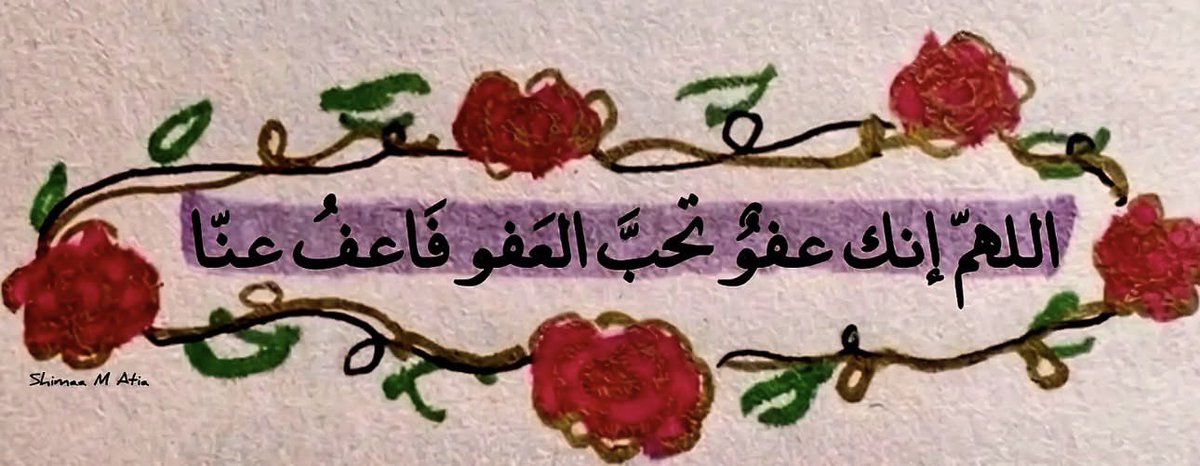 اللهمّ إنك عفوٌ تحبَّ العَفو فَاعفُ عنّا
Shimaa M Atia